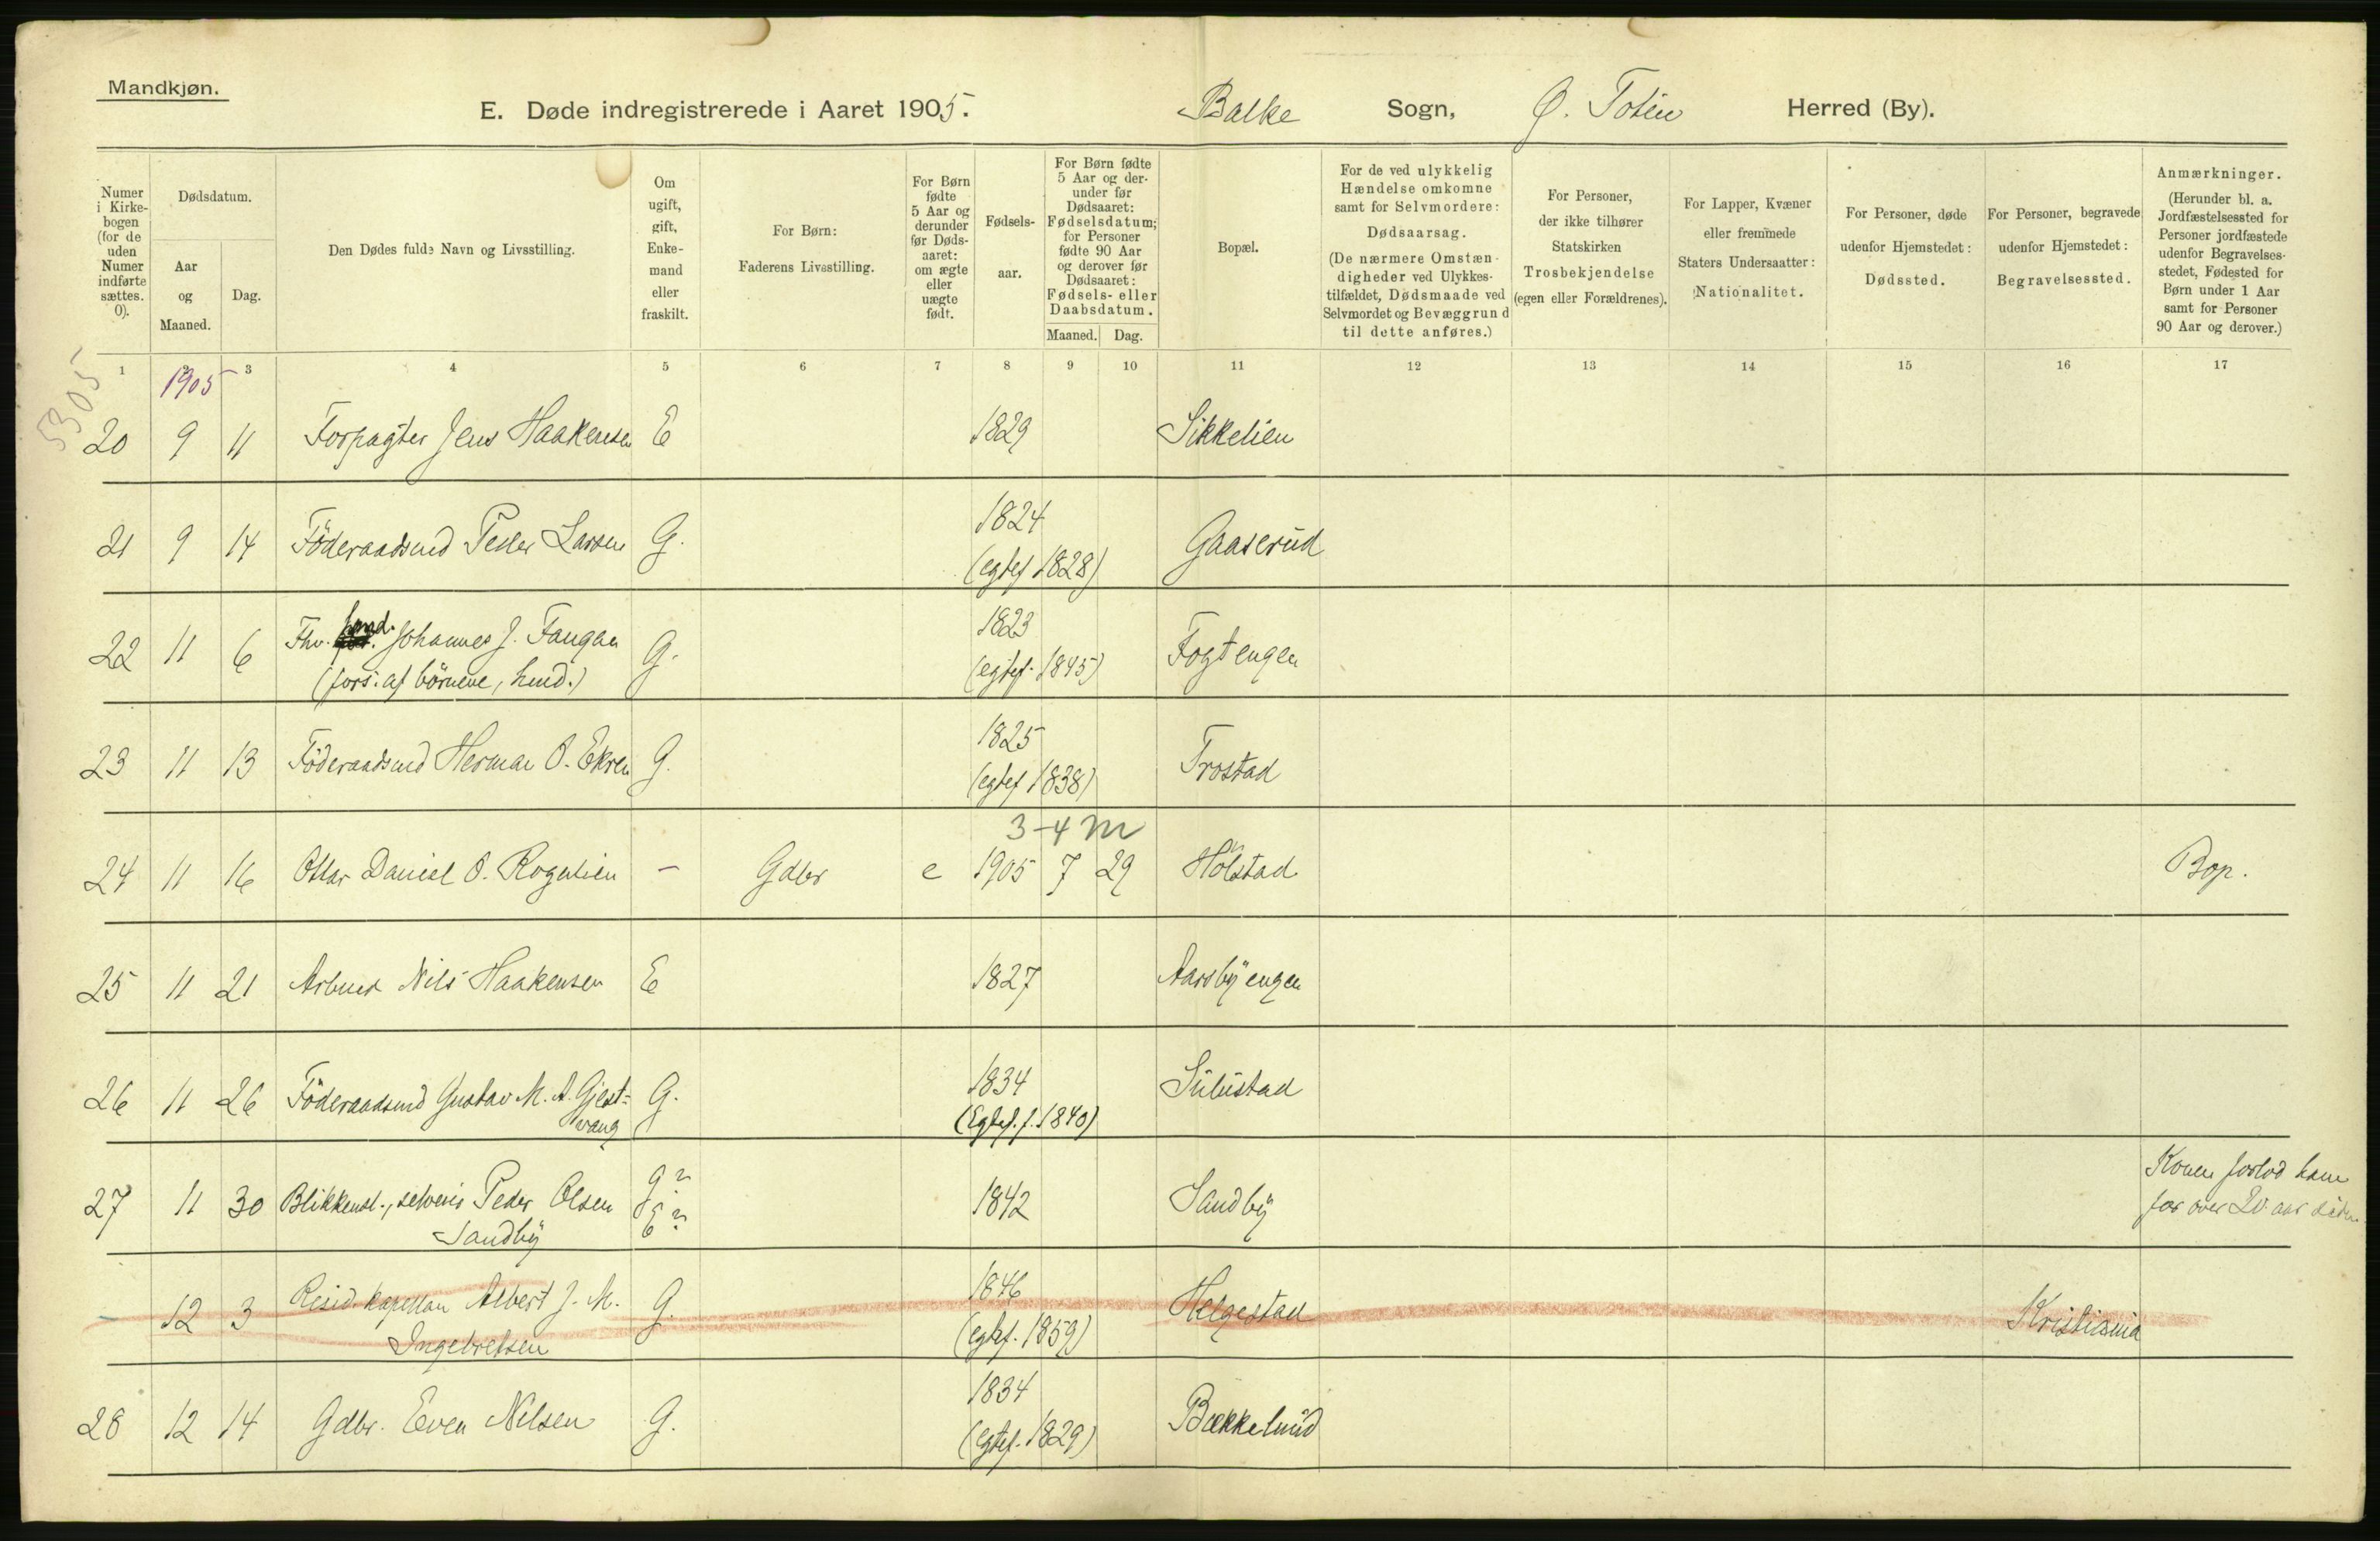 Mandkjøn.
E. Døde indregistrerede i Aaret 1905. Balke Sogn, Ø. Toten Herred (By).
Numer i Kirkebogen (for de uden Numer indførte sættes. 0).
Dødsdatum.
Aar og Maaned.
Dag.
Den Dødes fulde Navn og Livsstilling.
Om ugift, gift, Enkemand eller fraskilt.
For Børn: Faderens Livsstilling.
For Børn fødte 5 Aar og derunder før Dødsaaret: om ægte eller uægte født.
Fødselsaar.
For Børn fødte 5 Aar og derunder før Dødsaaret: Fødselsdatum; for Personer fødte 90 Aar og derover før Dødsaaret: Fødsels- eller Daabsdatum.
Maaned. Dag.
Bopæl.
For de ved ulykkelig Hændelse omkomne samt for Selvmordere: Dødsaarsag. (De nærmere Omstændigheder ved Ulykkestilfældet, Dødsmaade ved Selvmordet og Bevæggrund til dette anføres.)
For Personer, der ikke tilhører Statskirken Trosbekjendelse (egen eller Forældrenes).
For Lapper, Kvæner eller fremmede Staters Undersaatter: Nationalitet.
For Personer, døde udenfor Hjemstedet: Dødssted.
For Personer, begravede udenfor Hjemstedet: Begravelsessted.
Anmærkninger. (Herunder bl. a. Jordfæstelsessted for Personer jordfæstede udenfor Begravelsesstedet, Fødested for Børn under 1 Aar samt for Personer 90 Aar og derover.)
1 2 3 4 5 6 7 8 9 10 11 12 13 14 15 16 17
5305
1905
20 9 11 Forpagter Jens Haakensen E 1829 Sikkelien
21 9 14 Föderaadsmd Peder Larsen G. 1824 Gaaserud
(egtef 1828)
22 11 6 Fhv. Johannes J. Fangen G. 1823 Fogtengen
(fors. af börnene, hmd.) (egtef. 1845)
23 11 13 Föderaadsmd Herman O. Ekren G. 1825 Trostad
(egtef 1838)
3-4 m
24 11 16 Ottar Daniel O. Rognlien – Gdbr e 1905 7 29 Holstad Bop.
25 11 21 Arbmd Nils Haakensen E 1827 Aarsbyengen
26 11 26 Föderaadsmd Gustav M. A. Gjest- G. 1834 Sulustad
vang (Egtef. f. 1840)
27 11 30 Blikkensl., selveier Peder Olsen G? E? 1842 Sandby Konen forlod ham
Sandby for over 20 aar siden
– 12 3 Resid. kapellan Albert J. M. G. 1846 Helgestad Kristiania
Ingebretsen (egtef. 1859)
28 12 14 Gdbr. Even Nilsen G. 1834 Bækkelund
(egtef. 1829)